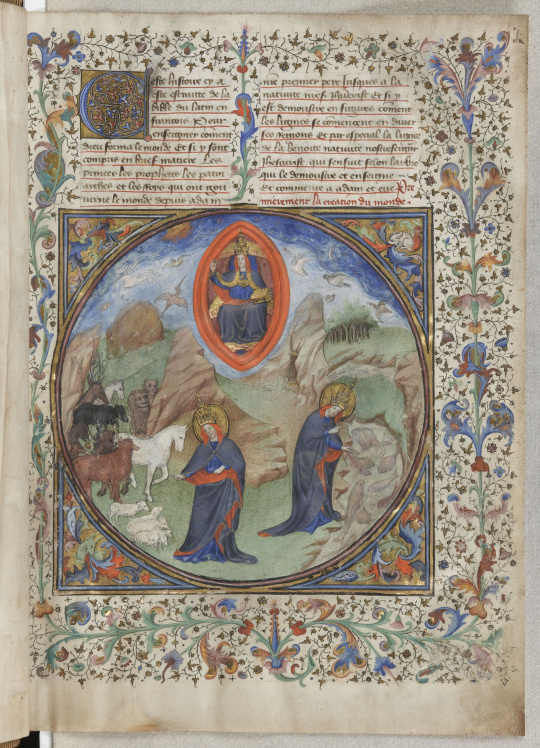 este histoire cy a
este estraitte de la
bible du latin en
francois Pour
enseigner coment
dieu forma le monde Et si y sont
compris en brief matiere Les
peres les prophetes les patri
arches et les roys qui ont gou
verne le monde depuis adam
nre premier pere Jusques a la
nativite
est demoustre en figures coment
les lignes se comencent en diver
ses et par especial la ligne
de la benoite nativite nostreseign
Jhesucrist qui sensuit selon larbre
qui le demoustre et enseigne
Et commence a adam et eve Pre
mierement La creation du monde